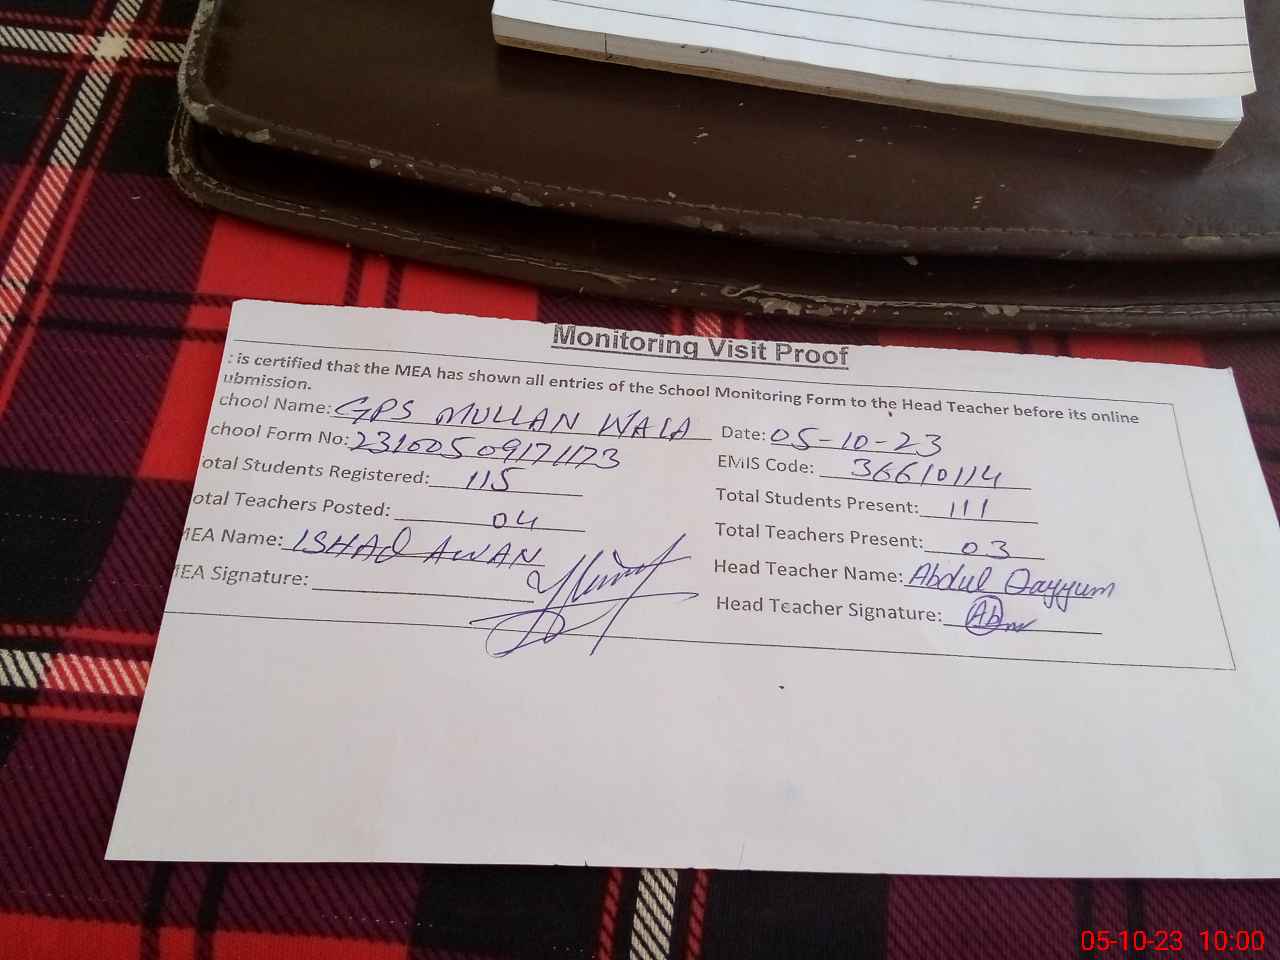 Monitoring Visit Proof
: is certified that the MEA has shown all entries of the School Monitoring Form to the Head Teacher before its online
ubmission.
chool Name: GPS MULLAN WALA Date: 05-10-23
chool Form No: 23100509171173 EMIS Code: 36610114
otal Students Registered: 115 Total Students Present: 111
otal Teachers Posted: 04 Total Teachers Present: 03
MEA Name: ISHAQ AWAN Head Teacher Name: Abdul Qayyum
MEA Signature: Head Teacher Signature:
05-10-23 10:00